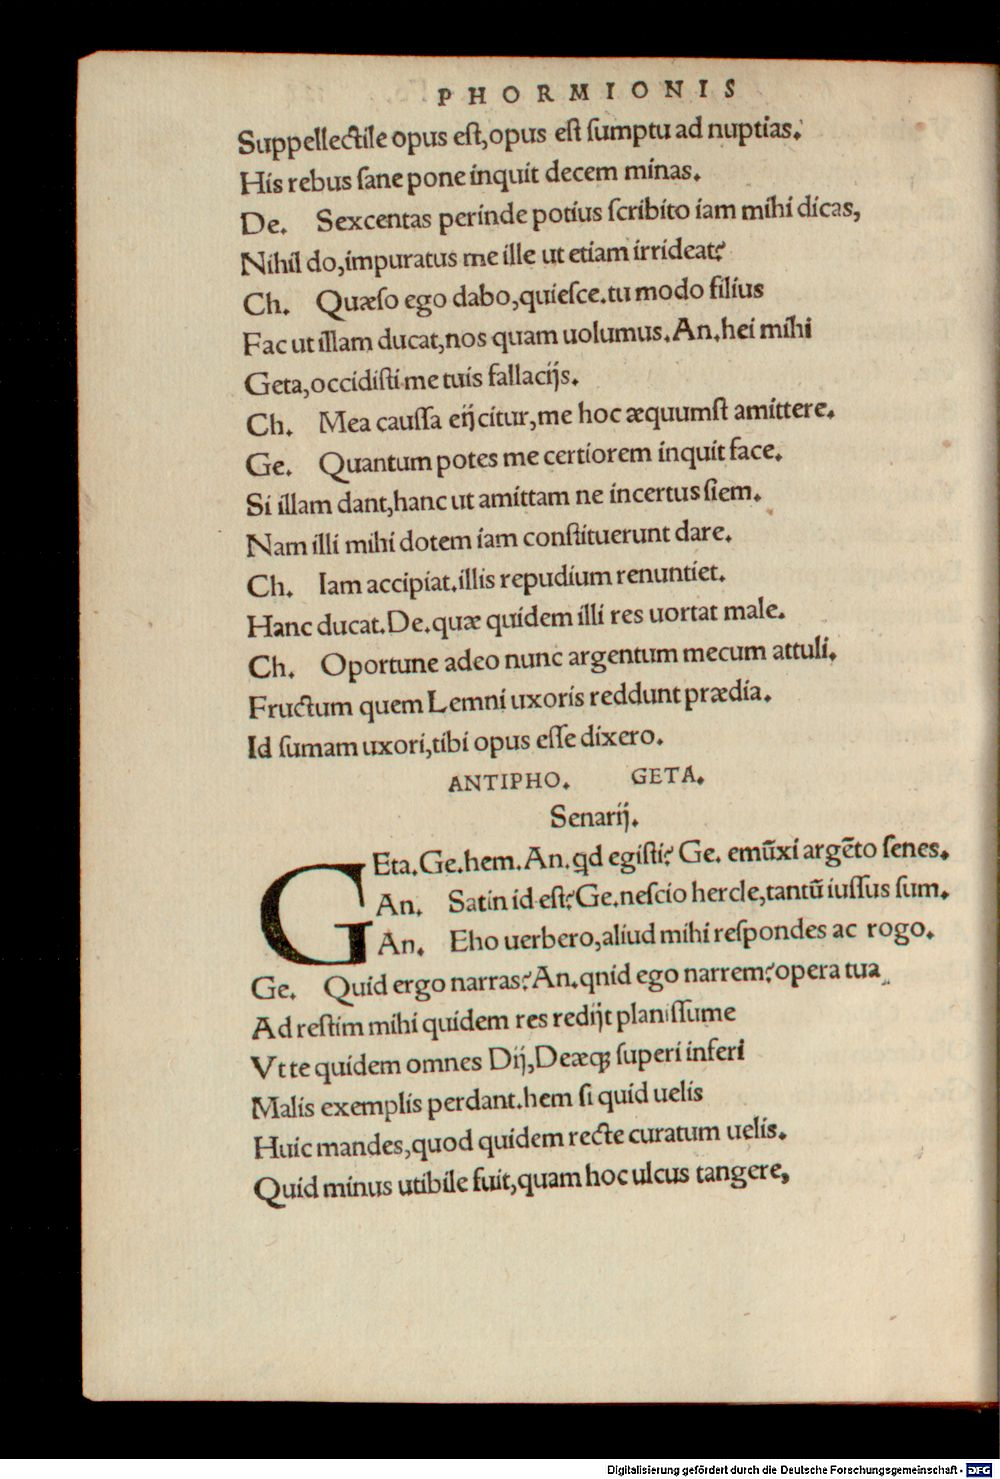 PHORMIONIS
Suppellectile opus est,opus est sumptu ad nuptias.
His rebus sane pone inquit decem minas.
De. Sexcentas perinde potius scribito iam mihi dicas,
Nihil do,impuratus me ille ut etiam irrideat?
Ch. Quæso ego dabo,quiesce.tu modo filius
Fac ut illam ducat,nos quam uolumus.An.hei mihi
Geta,occidisti me tuis fallacijs.
Ch. Mea caussa eijcitur,me hoc æquumst amittere.
Ge. Quantum potes me certiorem inquit face.
Si illam dant,hanc ut amittam ne incertus siem.
Nam illi mihi dotem iam constituerunt dare.
Ch. Iam accipiat.illis repudium renuntiet.
Hanc ducat.De.quæ quidem illi res uortat male.
Ch. Oportune adeo nunc argentum mecum attuli.
Fructum quem Lemni uxoris reddunt prædia.
Id sumam uxori,tibi opus esse dixero.
ANTIPHO. GETA.
Senarij.
GEta.Ge.hem.An.qd egisti? Ge. emũxi argẽto senes.
An. Satin id est?Ge.nescio hercle,tantũ iussus sum.
An. Eho uerbero,aliud mihi respondes ac rogo.
Ge. Quid ergo narras?An.qnid ego narrem?opera tua
Ad restim mihi quidem res redijt planissume
Vt te quidem omnes Dij,Deæq; superi inferi
Malis exemplis perdant.hem si quid uelis
Huic mandes,quod quidem recte curatum uelis.
Quid minus utibile fuit,quam hoc ulcus tangere,
Digitalisierung gefördert durch die Deutsche Forschungsgemeinschaft - DFG